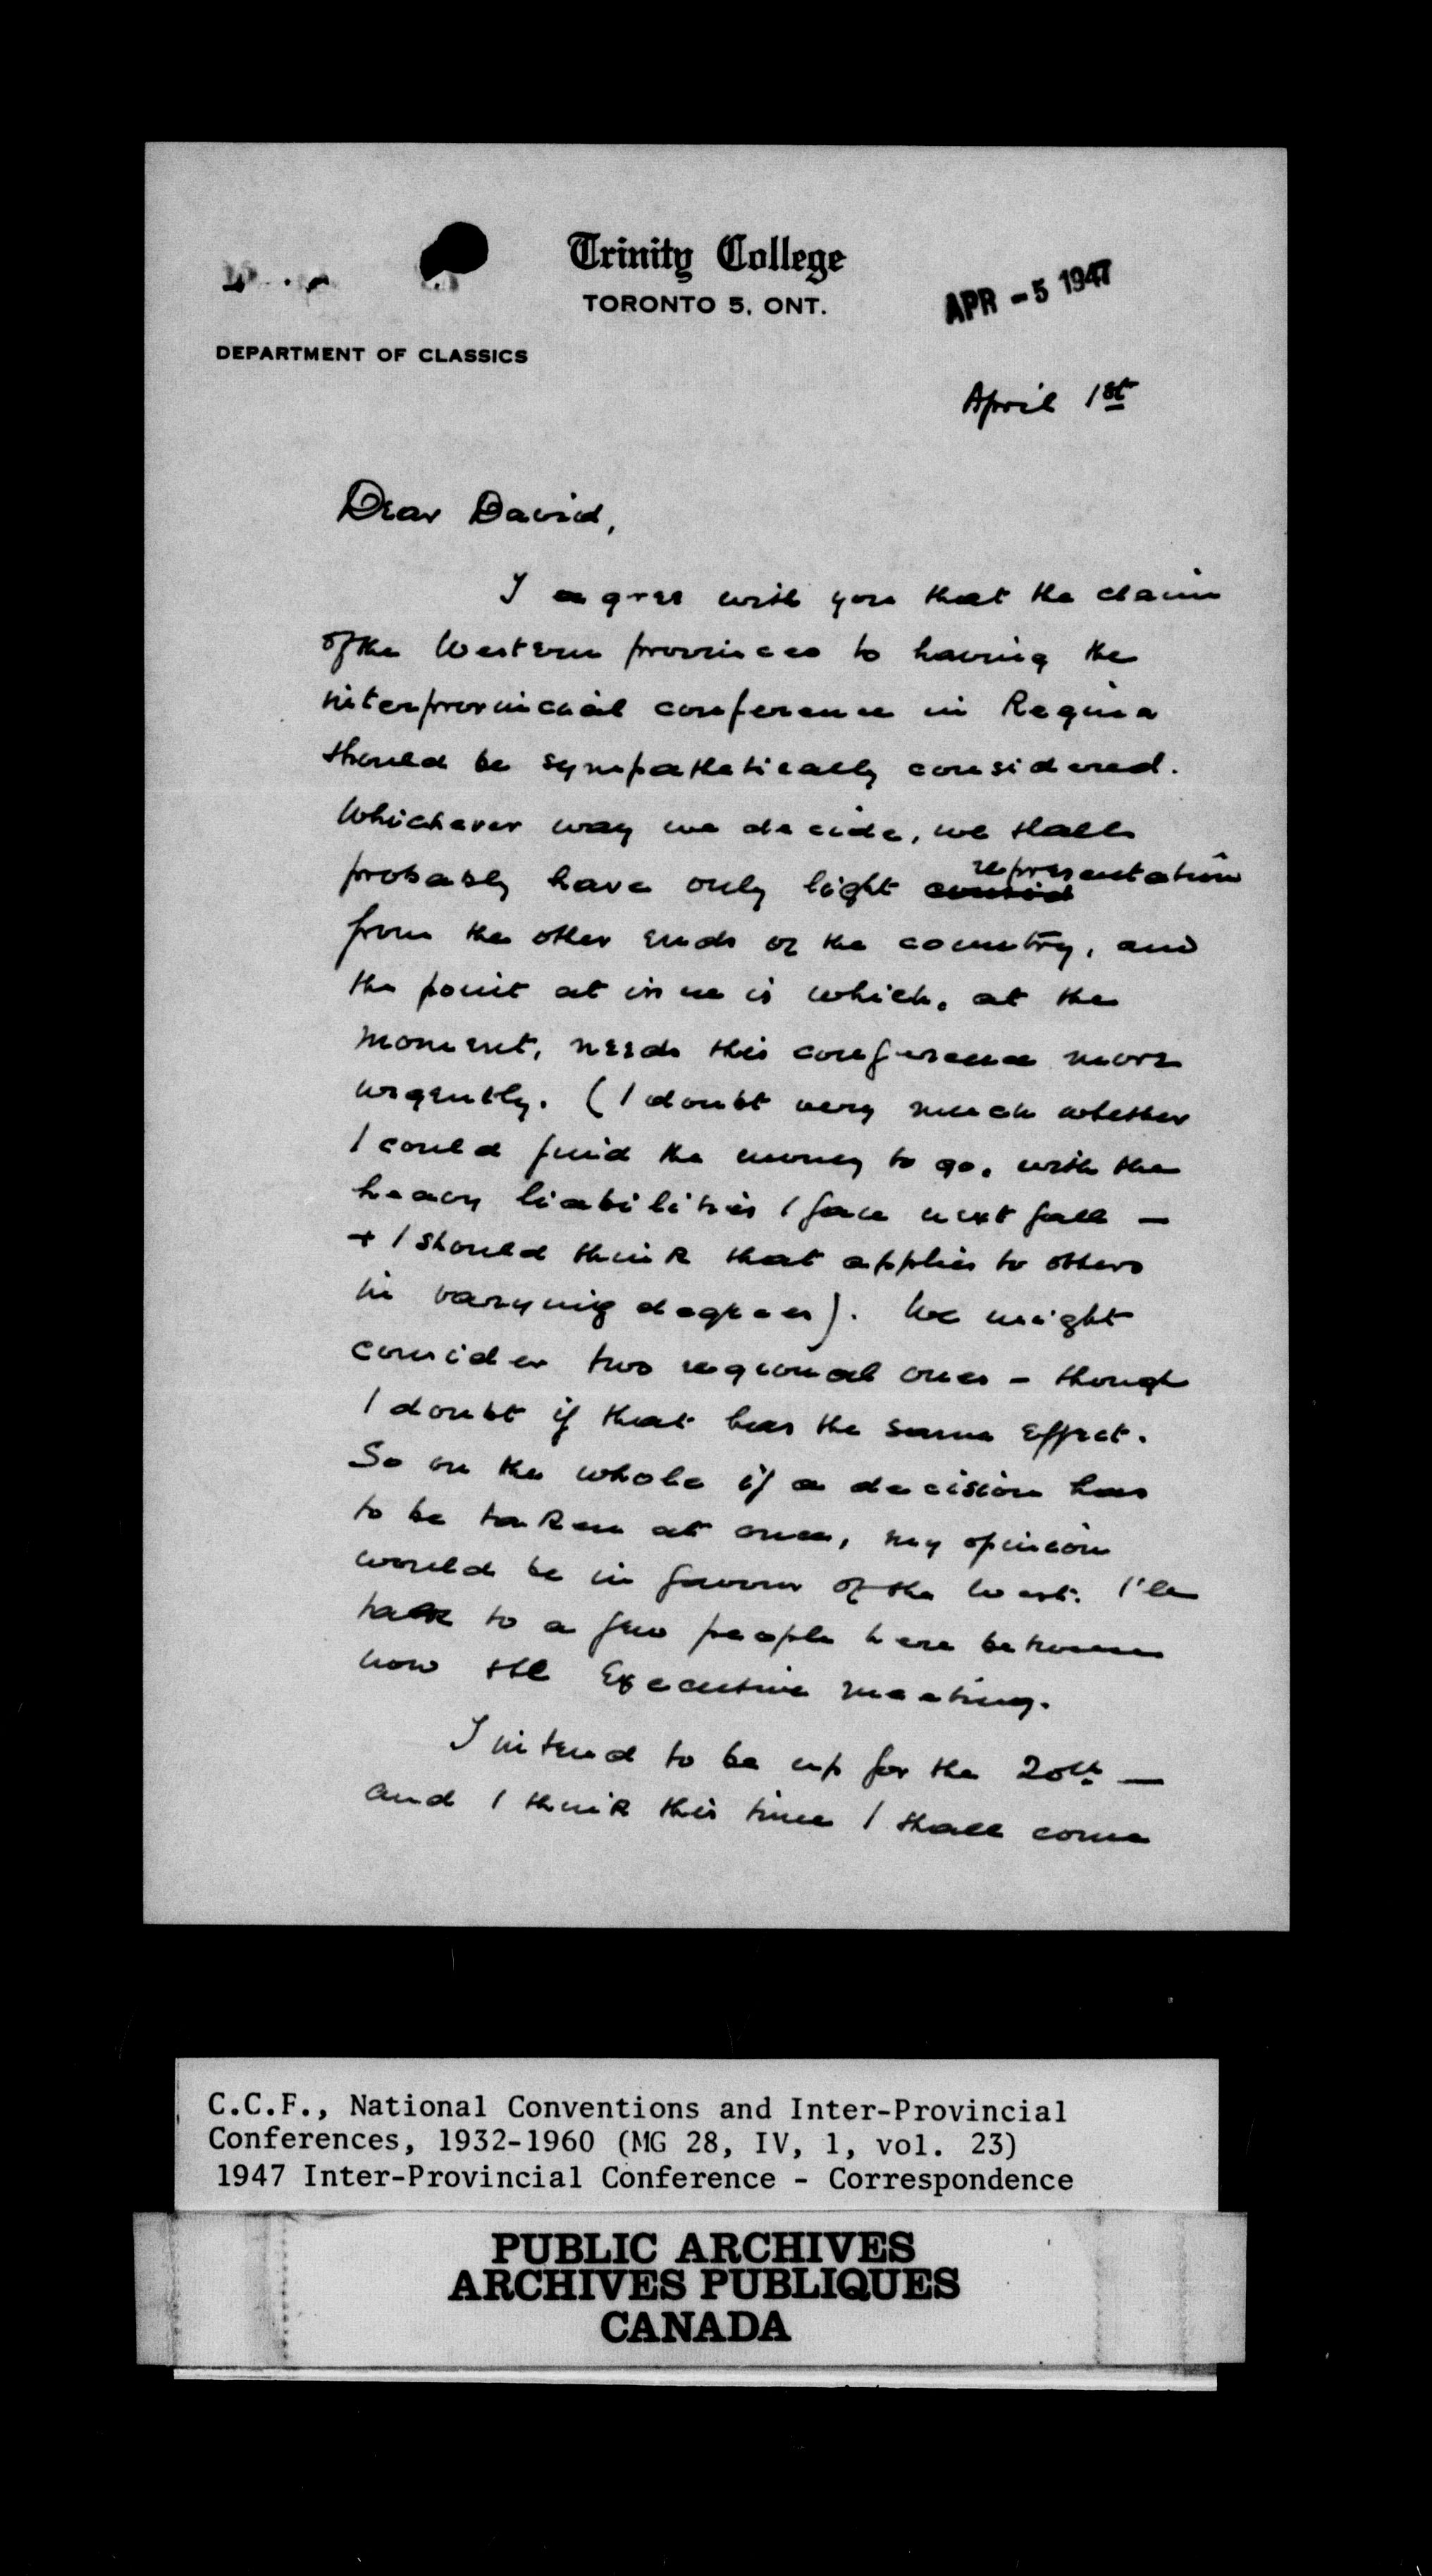 Trinity College
TORONTO 5, ONT.
APR - 5 1947
DEPARTMENT OF CLASSICS
April 1st
Dear David,
I agree with you that the claim
of the Western provinces to having the
interprovincial conference in Regina
should be sympathetically considered.
Whichever way we decide, we shall
probably have only light representation
from the other ends of the country, and
the point at issue is which, at the
moment, needs this conference more
urgently. (I doubt very much whether
I could find the money to go, with the
heavy liabilities I face next fall —
+ I should think that applies to others
in varying degrees). We might
consider two regional ones - though
I doubt if that has the same effect.
So on the whole if a decision has
to be taken at once, my opinion
would be in favour of the West. I'll
talk to a few people here between
now the Executive meeting.
I intend to be up for the 20th —
and I think this time I shall come
C.C.F., National Conventions and Inter-Provincial
Conferences, 1932-1960 (MG 28, IV, 1, vol. 23)
1947 Inter-Provincial Conference - Correspondence
PUBLIC ARCHIVES
ARCHIVES PUBLIQUES
CANADA